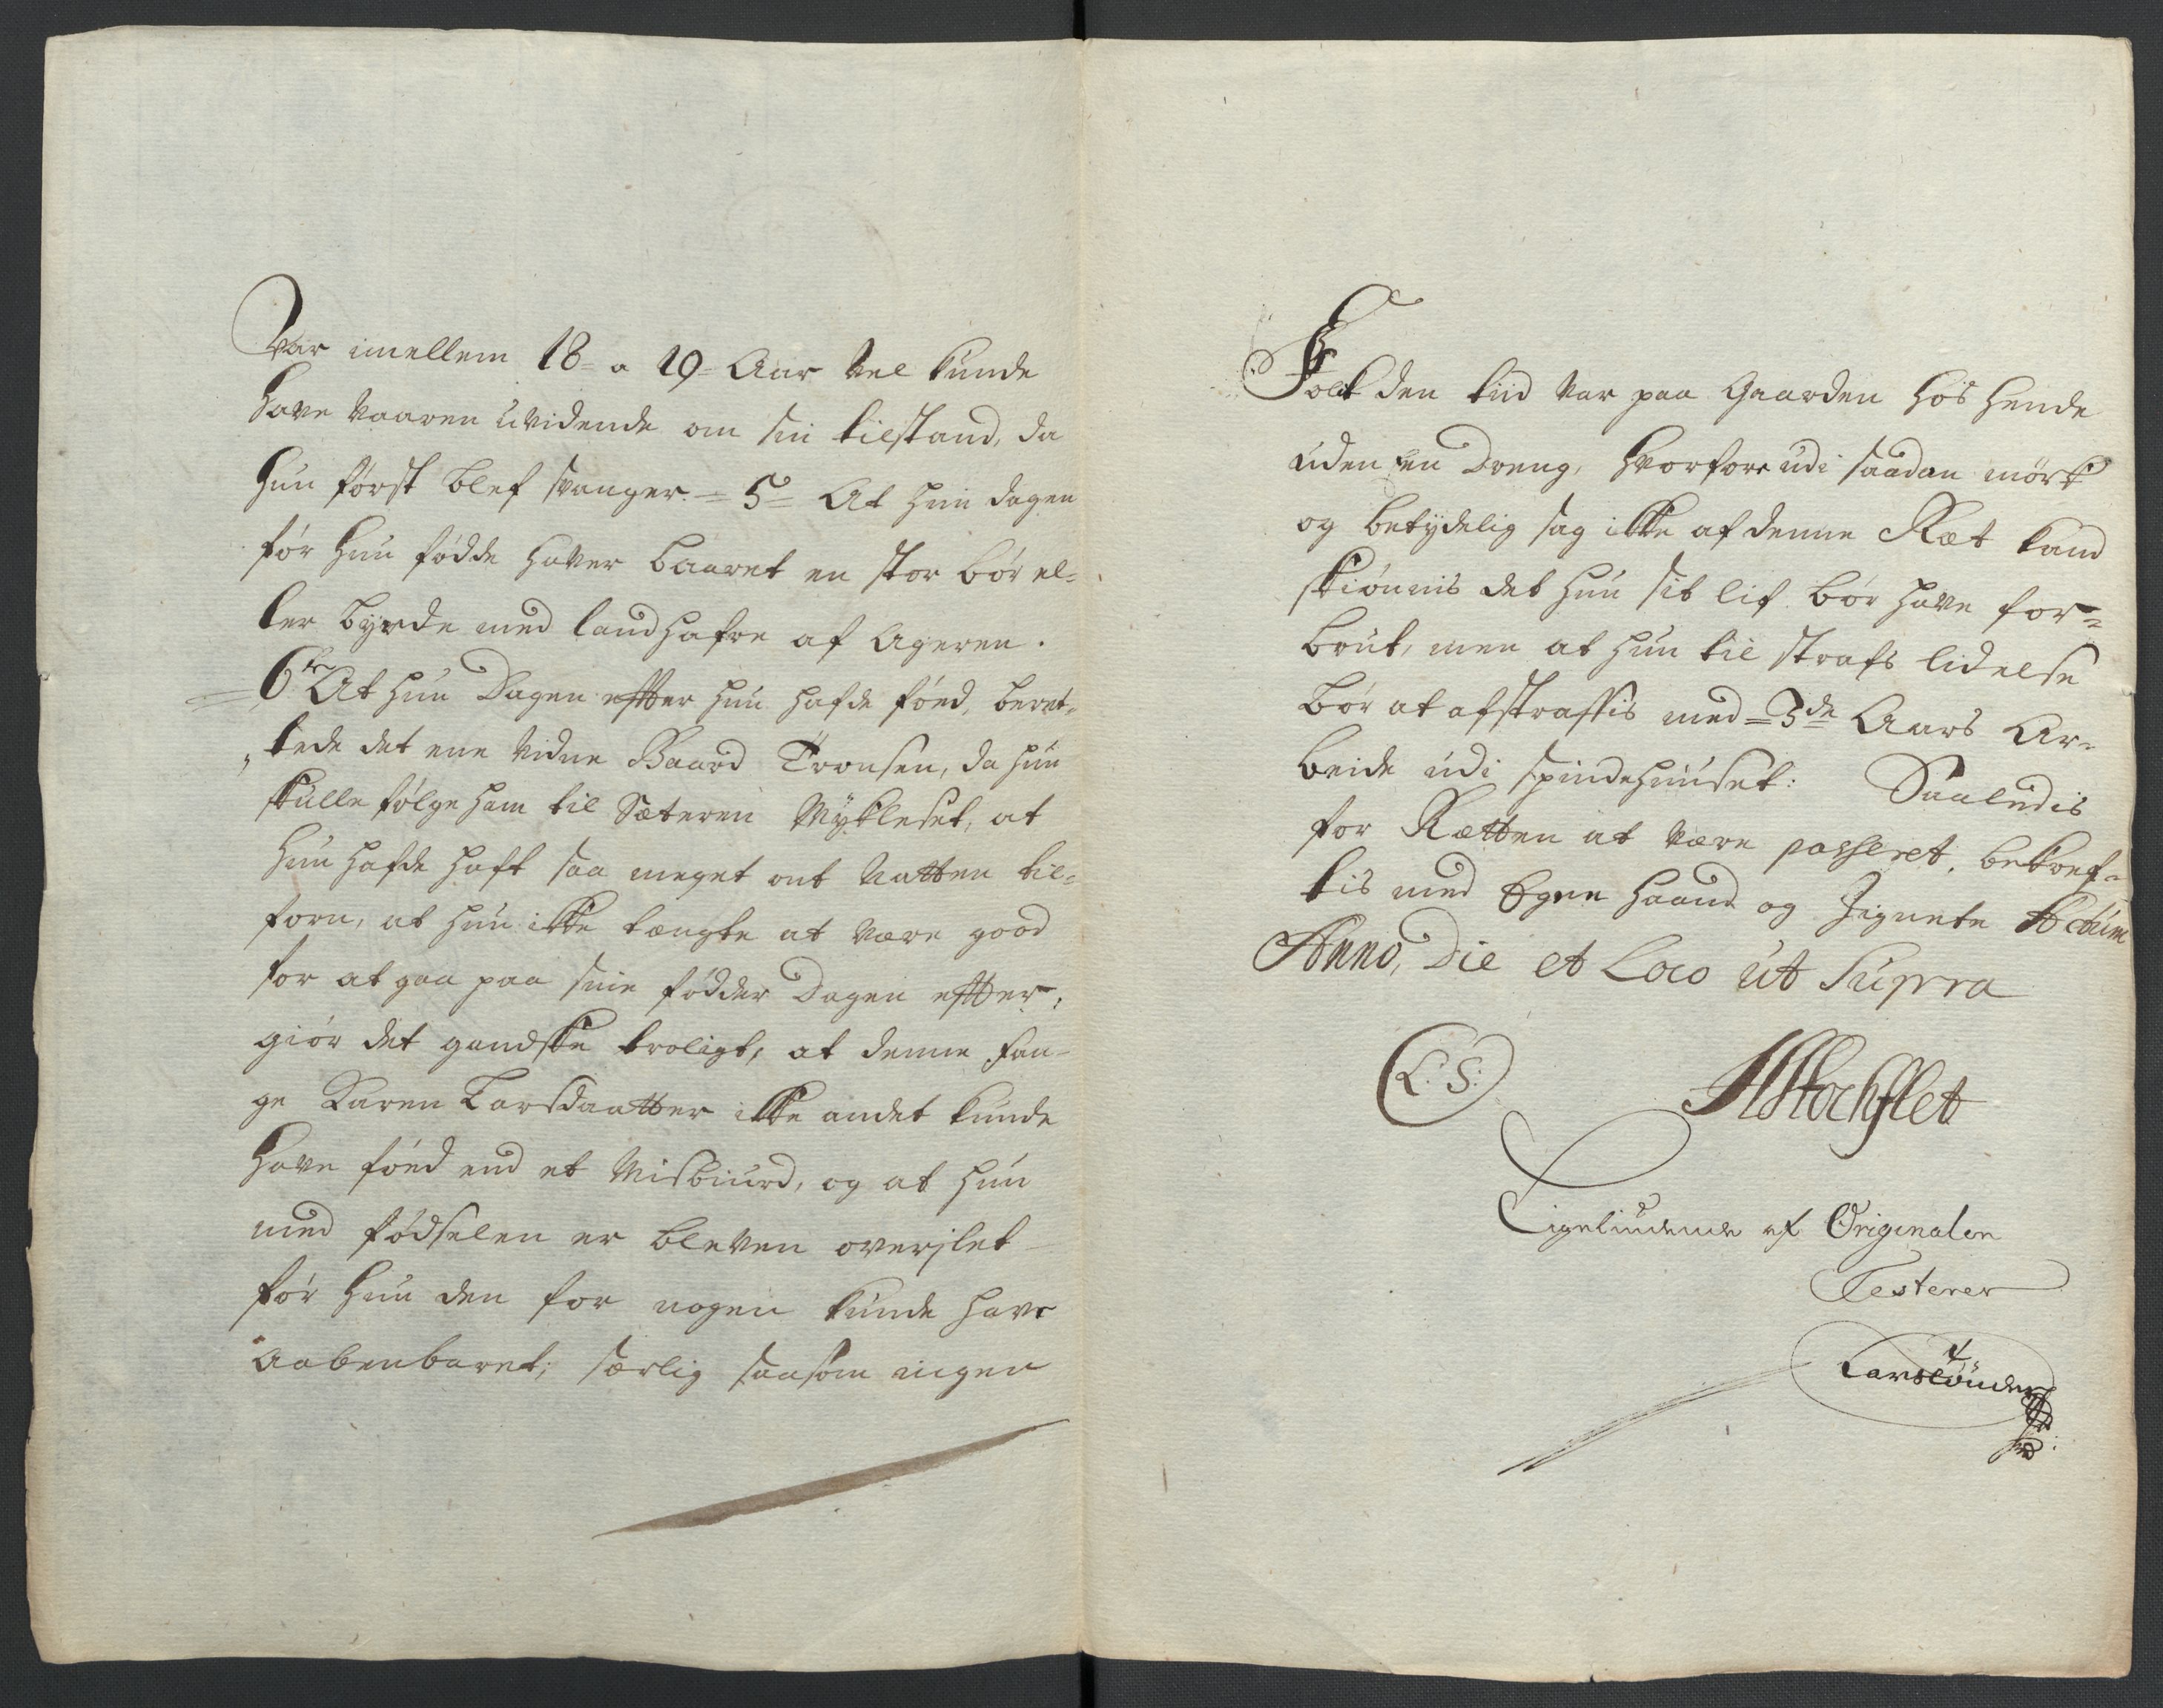 Var imellem 18 a 19 Aar vel kunde
have vaaren uvidende om sin tilstand, da
hun først blef svanger = 5= At hun dagen
før hun fødde haver baaret en stor bør el-
ler byrde med landhafre af Ageren.
6te At hun Dagen effter hun hafde føed, beret-
tede det ene vidne Baard Tronsen, da hun
skulle følge ham til Sæteren Mykleset, at
hun hafde haft saa meget ont Natten til-
forn, at hun ikke tængte at være good
for at gaa paa sine fødder Dagen effter;
giør det gandske troligt, at denne fan-
ge Karen Larsdaatter ikke andet kunde
have føed end et Misbiurd, og at hun
med fødselen er bleven overjlet
før hun den for nogen kunde have
aabenbaret; særlig saasom ingen
Folk den tiid var paa Gaarden hos hende
uden een Dreng, hvorfore udi saadan mørk
og betydelig sag ikke af denne Ræt kand
skiønnis det hun sit lif bør have for-
brut, men at hun til strafs lidelse
bør at afstraffis med =3de Aars Ar-
beide udi spindehuuset: Saaledis
for Rætten at være passeret, bekref-
tis med Egen haand og Zignete Actum
Anno, Die et Loco ut Supra
L: S: HStockflet
Ligeliudende af Originalen
Testerer